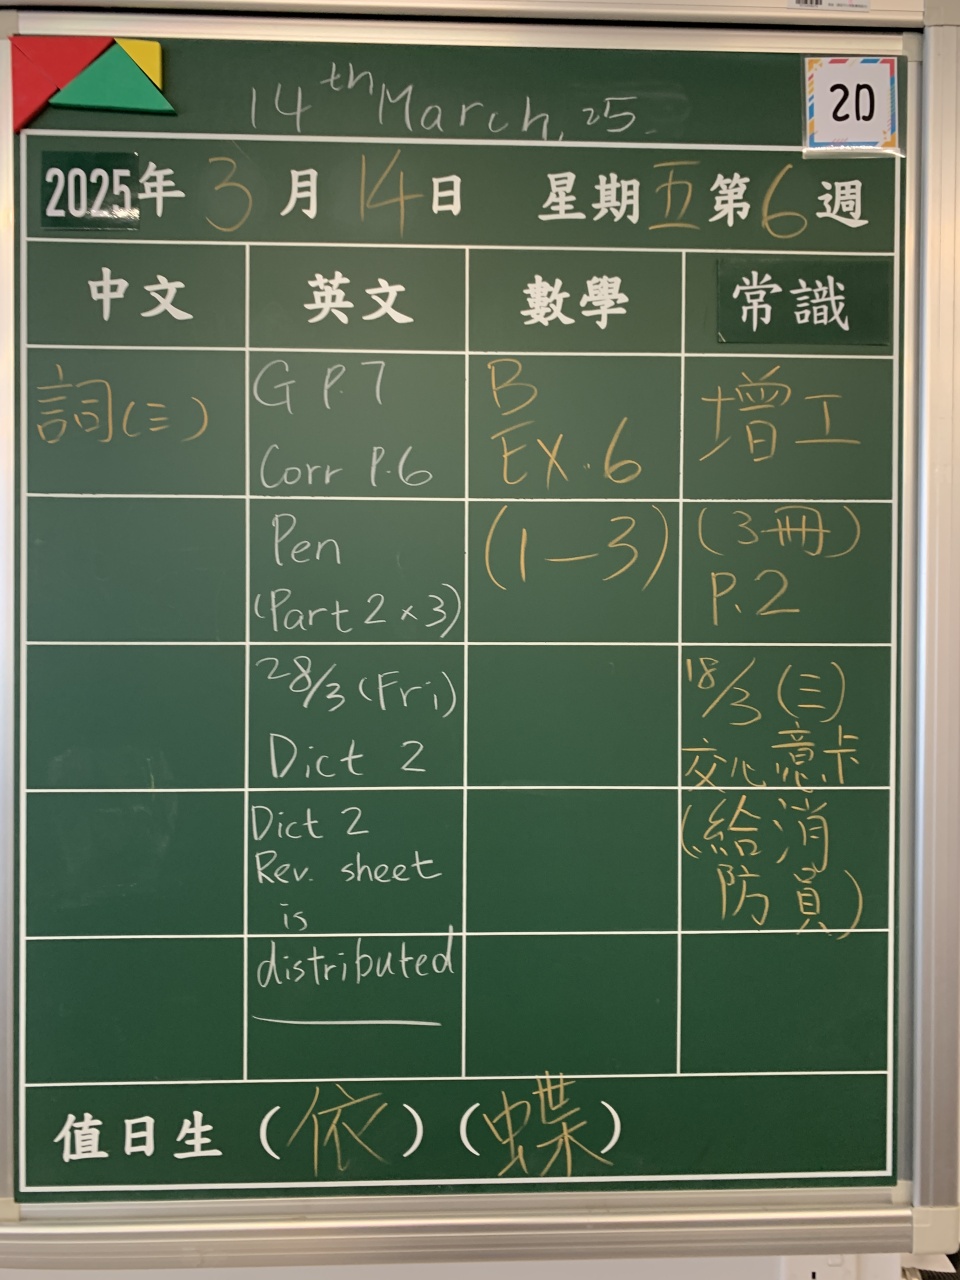 14th March, 25.
2D
2025年3月14日 星期五第6週
中文 英文 數學 常識
詞(三)
G P.7
Corr P.6
Pen
(Part 2 x 3)
28/3 (Fri)
Dict 2
Dict 2
Rev. sheet
is
distributed
B
EX.6
(1-3)
增工
(3冊)
P.2
18/3 (三)
交心意卡
(給消
防員)
值日生 (依) (蝶)